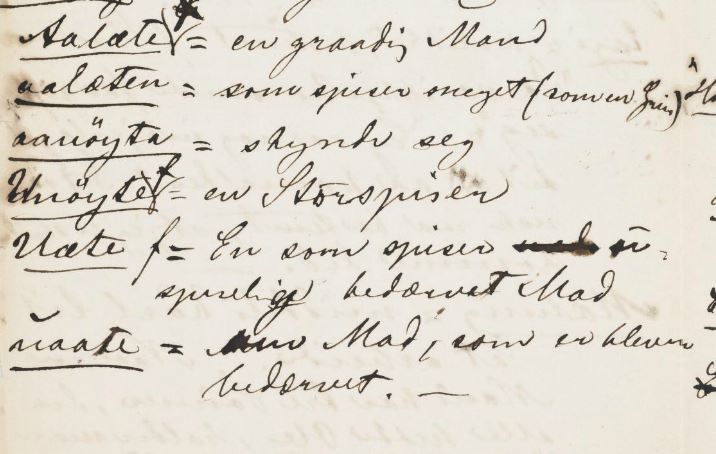 Aalæte f = en graadig Mand
aalæten = som spiser meget (som en Griis)
aanöyta = skynde seg
Unöyte f = en Storspiser
Uæte f = En som spiser u-
spiselig bedærvet Mad
uaate = Mad, som er bleven
bedærvet. —